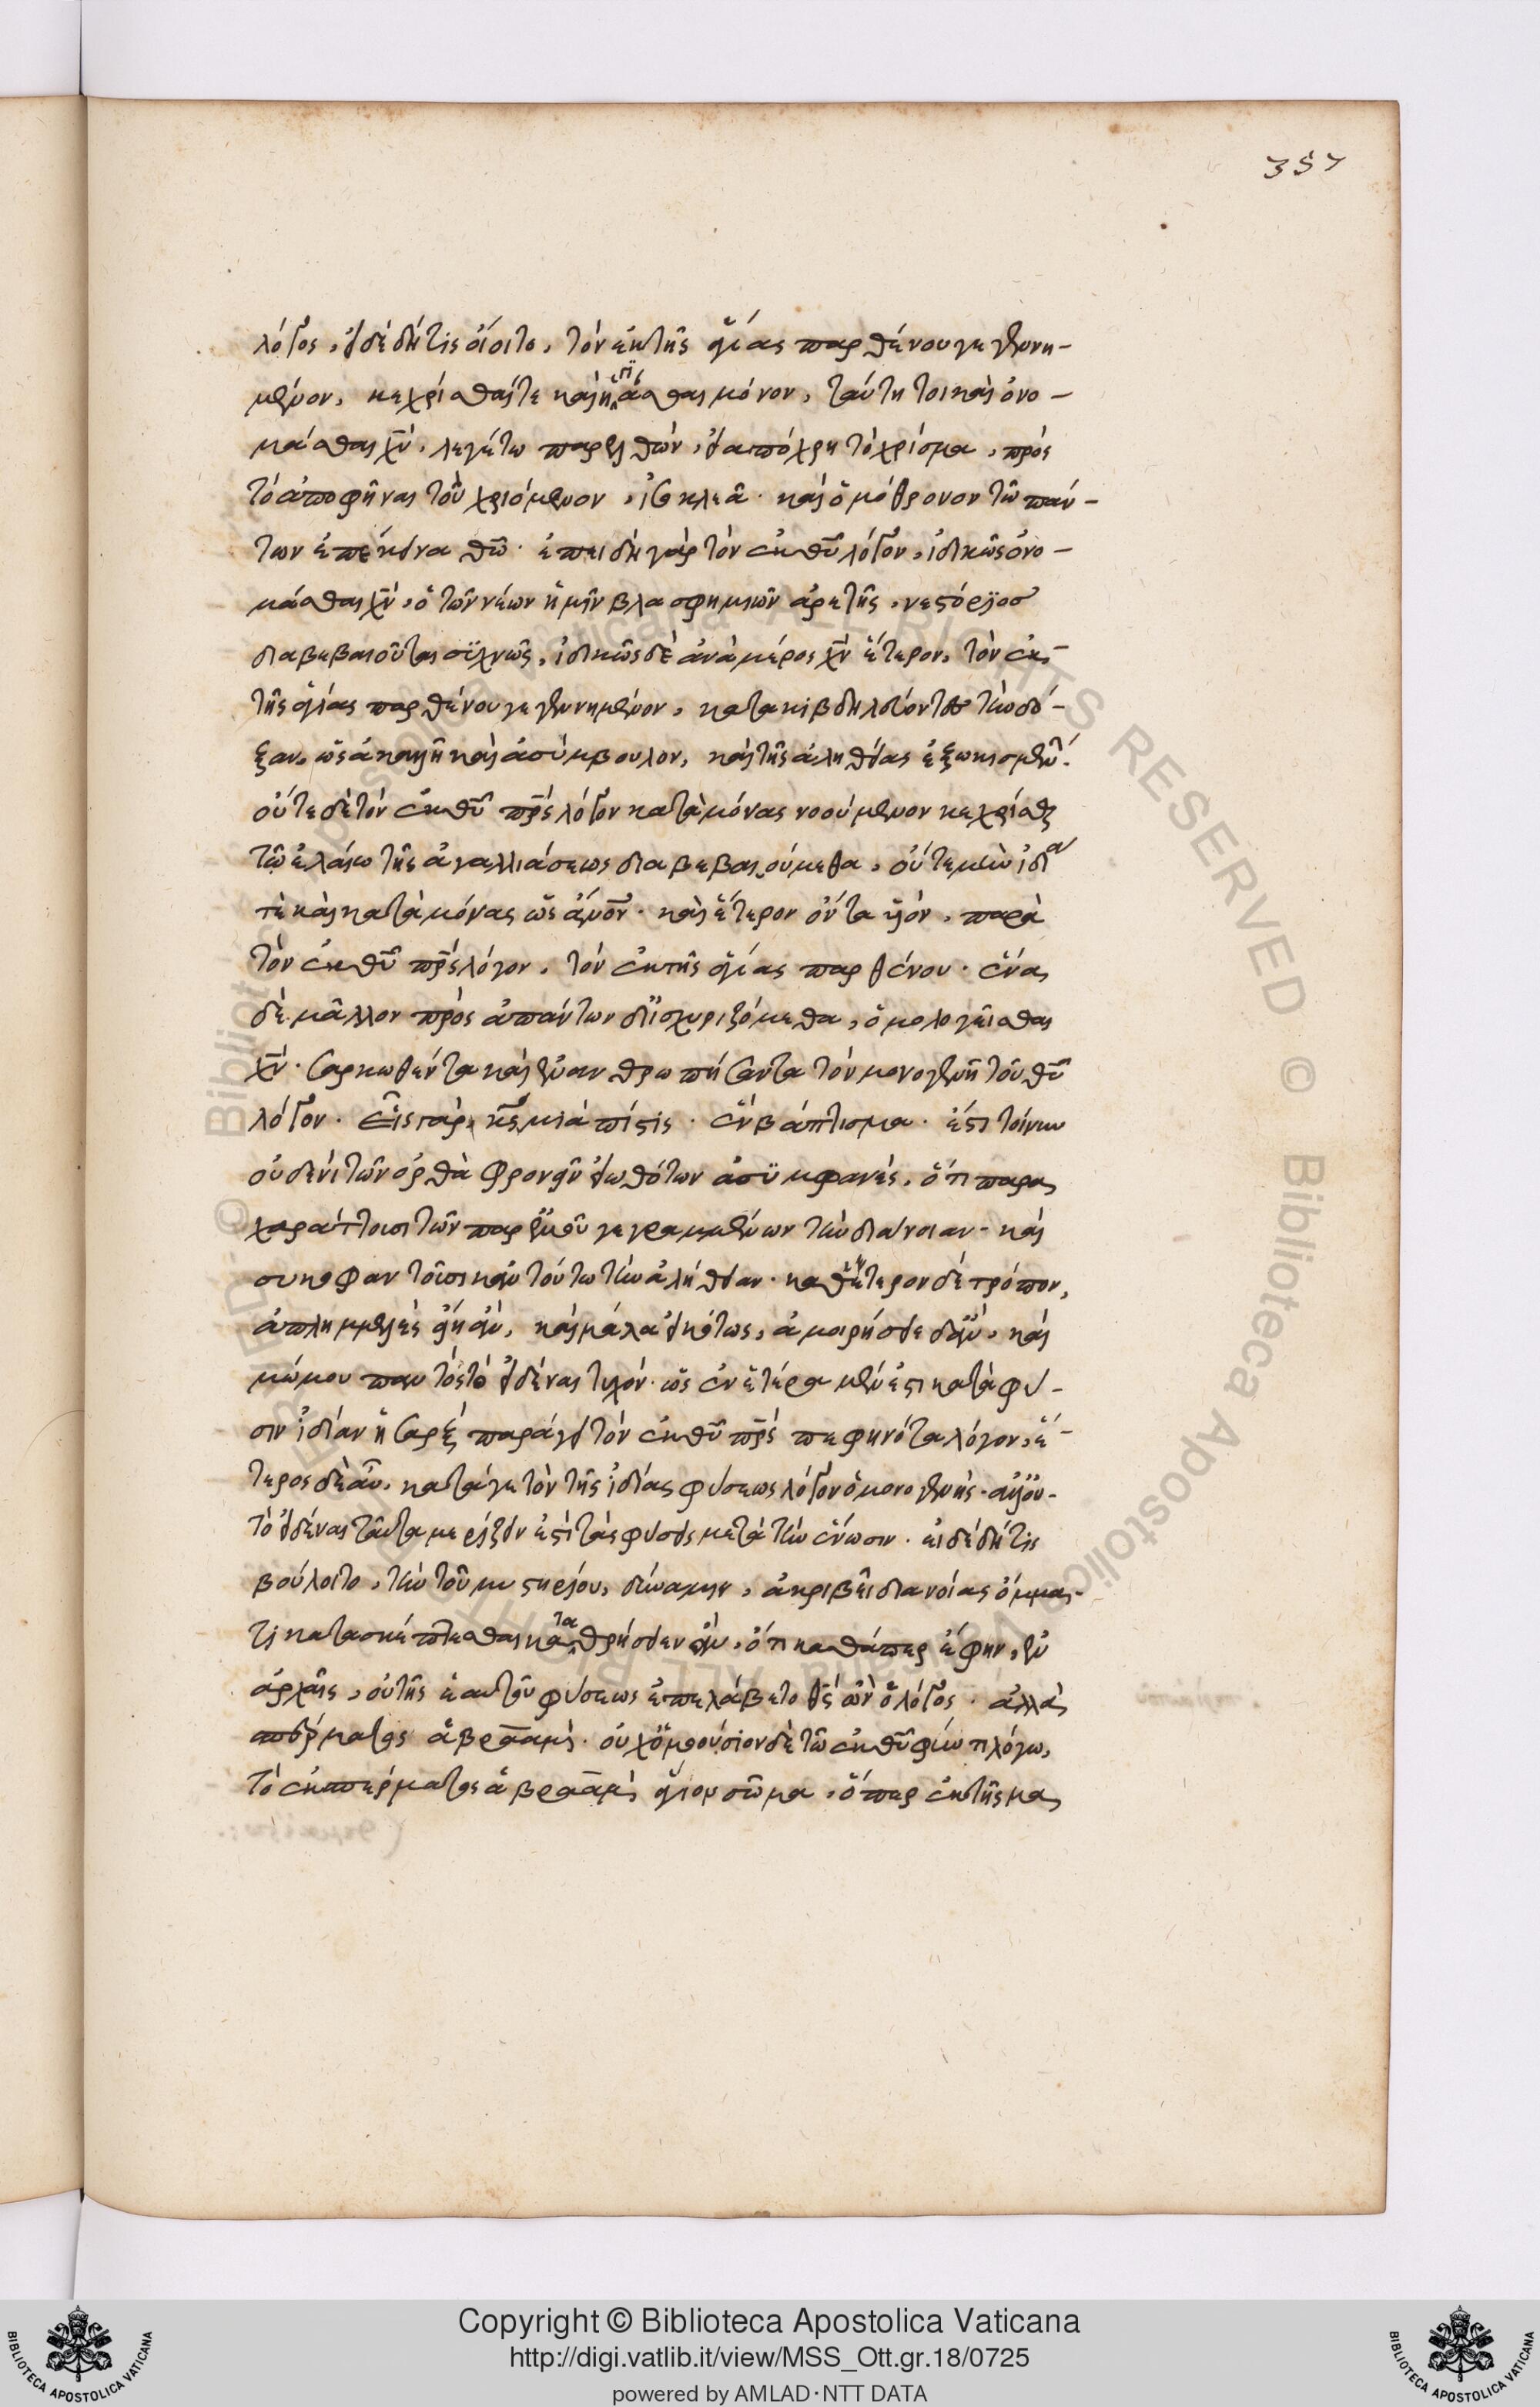 357
λόγος. εἰ δὲ δή τις οἴοιτο, τὸν ἐκ τῆς ἁγίας παρθένου γεγεννη-
μένον, κεχρίσθαί τε καὶ ἡγιάσθαι μόνον, ταύτῃ τοι καὶ ὀνο-
μάσθαι χν̄, λεγέτω παρελθών, εἰ ἀπόχρη τὸ χρίσμα, πρὸς
τὸ ἀποφῆναι τὸν χριόμενον, ἰσοκλεᾶ· καὶ ὁμόθρονον τῷ πάν-
των ἐπέκεινα θω̄· ἐπειδὴ γὰρ τὸν ἐκ θῡ λόγον, ἰδικῶς ὀνο-
μάσθαι χν̄, ὁ τῶν νέων ἡμῖν βλασφημιῶν εὑρετής, νεστόριος
διαβεβαιοῦται συχνῶς, ἰδικῶς δὲ ἀνὰ μέρος χν̄ ἕτερον, τὸν ἐκ
τῆς ἁγίας παρθένου γεγεννημένον, τὴν δό-
ξαν, ὡς ἀκαλλῆ καὶ ἀσύμβουλον, καὶ τῆς ἀληθείας ἐξωκισμένην.
οὔτε δὲ τὸν ἐκ θῡ πρ̄ς λόγον κατὰ μόνας νοούμενον κεχρίσθαι
τῷ ἐλαίῳ τῆς ἀγαλλιάσεως διαβεβαιούμεθα, οὔτε μὴν ἰδίᾳ
τὲ καὶ κατὰ μόνας ὡς ἄνον̄· καὶ ἕτερον ὄντα υἱὸν, παρὰ
τὸν ἐκ θῡ πρ̄ς λόγον, τὸν ἐκ τῆς ἁγίας παρθένου· ἕνα
δὲ μᾶλλον πρὸς ἁπάντων διισχυριζόμεθα, ὁμολογεῖσθαι
χν̄· σαρκωθέντα καὶ ἐνανθρωπήσαντα τὸν μονογενῆ τοῦ θῡ
λόγον. Εἷς γάρ, κς̄ μία πίστις· ἓν βάπτισμα. ἔστι τοίνυν
οὐδενὶ τῶν ὀρθὰ φρονεῖν εἰωθότων ἀσυμφανὲς, ὅτι παρα
χαράττουσι τῶν παρ' ἐμοῦ γεγραμμένων τὴν διάνοιαν· καὶ
συκοφαντοῦσι κἂν τούτῳ τὴν ἀλήθειαν. καθ' ἕτερον δὲ τρόπον,
ἀπλημμελὲς εἴη ἂν, καὶ μάλα εἰκότως, ἀμοιρήσειε δ' ἂν, καὶ
μώμου παντὸς τὸ εἰδέναι τυχόν· ὡς ἑτέρα μέν ἐστι κατὰ φύ-
σιν ἰδίαν ἡ σαρξ παρά γε τὸν ἐκ θῡ πρ̄ς πεφηνότα λόγον, ἕ-
τερος δὲ αὖ, κατά γε τὸν τῆς ἰδίας φύσεως λόγον ὁ μονογενής·
τὸ εἰδέναι ταῦτα μερίζειν ἐστὶ τὰς φύσεις μετὰ τὴν ἕνωσιν. εἰ δὲ δή τις
βούλοιτο, τὴν τοῦ μυστηρίου, δύναμιν, ἀκριβεῖ διανοίας ὄμμα-
τι κατασκέπτεσθαι καταθρήσειεν ἂν, ὅτι καθάπερ ἔφην, ἐν
ἀρχαῖς, οὐ τῆς ἑαυτοῦ φύσεως ἐπελάβετο θς̄ ὢν ὁ λόγος· ἀλλὰ
σπέρματος ἀβραάμ. οὐχ ὁμοούσιον δὲ τῷ ἐκ θῡ φύντι λόγῳ,
τὸ ἐκ σπέρματος ἀβραὰμ ἅγιον σῶμα, ὅπερ ἐκ τῆς μα
Copyright © Biblioteca Apostolica Vaticana
http://digi.vatlib.it/view/MSS_Ott.gr.18/0725
powered by AMLAD·NTT DATA